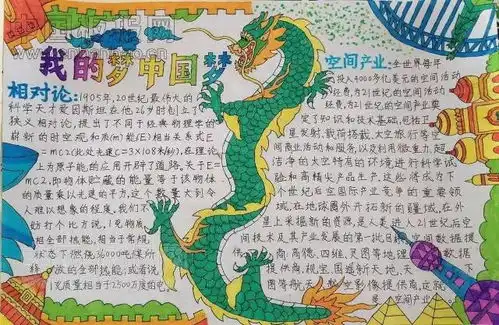 我的梦中国梦
相对论:1905年,20世纪最伟大的
科学天才爱因斯坦在他26岁时创立了
狭义相对论,提出了不同于经典物理学的
崭新的时空观和质(m)能(E)相当关系式E
=mc2(此处光速C=3×108米秒),在理论
上为原子能的应用开辟了道路。关于E=
mc2,即物体贮藏的能量等于该物体
的质量乘以光速的平方,这个数量大到令
人难以想象的程度,我们不
妨打个比方说,1克物质
相全部热能,相当于常规
状态下燃烧36000吨煤所
释放的全部热能;或者说
1克质量相当于2500万度的电
空间产业:全世界每年
投入900多亿美元的空间活动
经费,为21世纪的空间活动
经费,为21世纪的空间产业奠
定了知识和技术基础,包括卫
星发射,载荷搭载,太空旅行等空
间商业活动和服务,以及利用微重力,超
洁净的太空特有的环境进行科学试
验和高精尖产品生产,这些将成为下
个世纪后空国际产业竞争的重要领
域,在地球圈外开拓新的疆域,在外
星上采掘新的资源,是人类进入21世纪后空
间技术及其产业发展的第一批目标,空间数据提
供商:高德、四维、灵图等地理
提供商,规宝、国遥新天地,天
下图等航天航空影像提供商,这就
是,空间产业